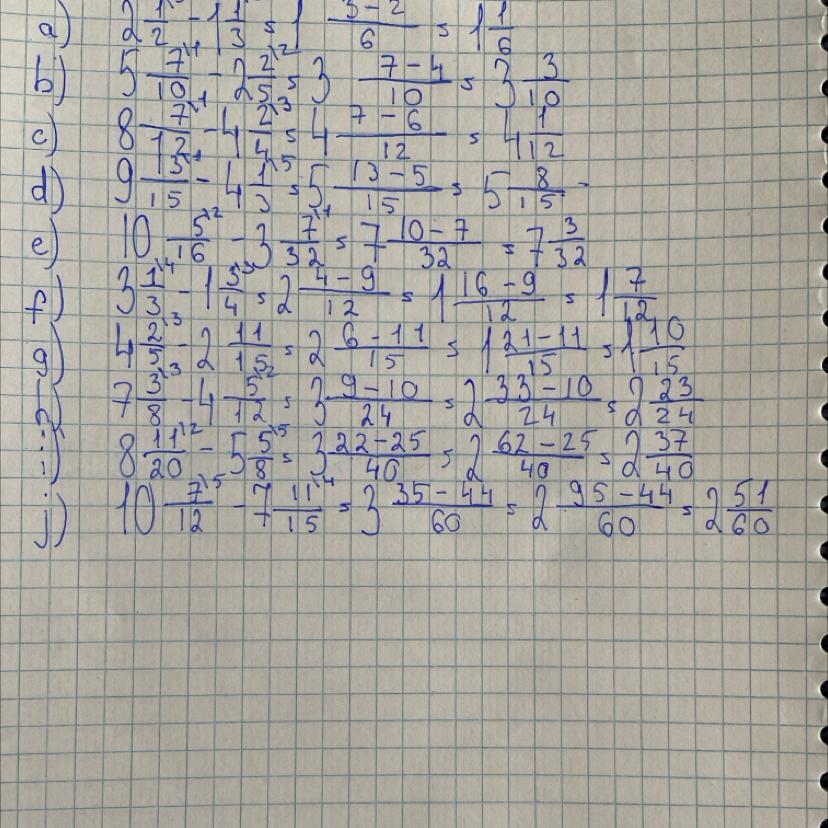 a) 2 1/2 - 1 1/3 = 1 3-2/6 = 1 1/6
b) 5 7\1/10 - 2 2\2/5 = 3 7-4/10 = 3 3/10
c) 8 7\1/12 - 4 2\3/4 = 4 7-6/12 = 4 1/12
d) 9 13\1/15 - 4 1\5/3 = 5 13-5/15 = 5 8/15
e) 10 5\2/16 - 3 7\1/32 = 7 10-7/32 = 7 3/32
f) 3 1\4/3 - 1 3\3/4 = 2 4-9/12 = 1 16-9/12 = 1 7/12
g) 4 2\3/5 - 2 11/15 = 2 6-11/15 = 1 21-11/15 = 1 10/15
7 3\3/8 - 4 5\2/12 = 3 9-10/24 = 2 33-10/24 = 2 23/24
i) 8 11\2/20 - 5 5\5/8 = 3 22-25/40 = 2 62-25/40 = 2 37/40
j) 10 7\5/12 - 7 11\4/15 = 3 35-44/60 = 2 95-44/60 = 2 51/60